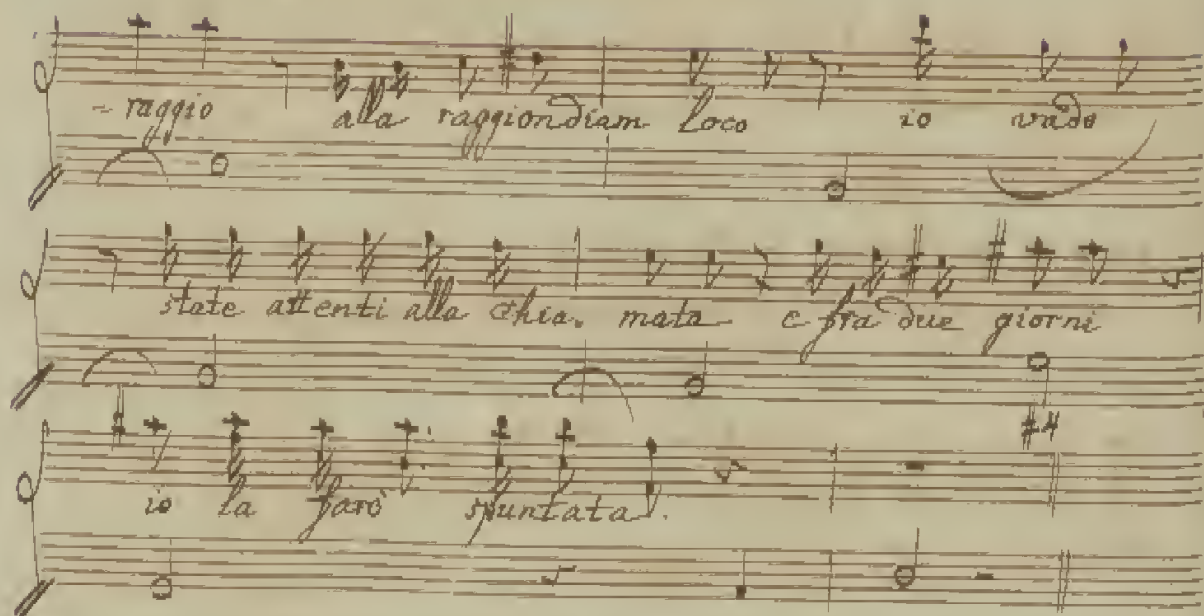 - raggio alla raggion diam loco io vado
state attenti alla chia. mata e fra due giorni
#4
io la farò spuntata.